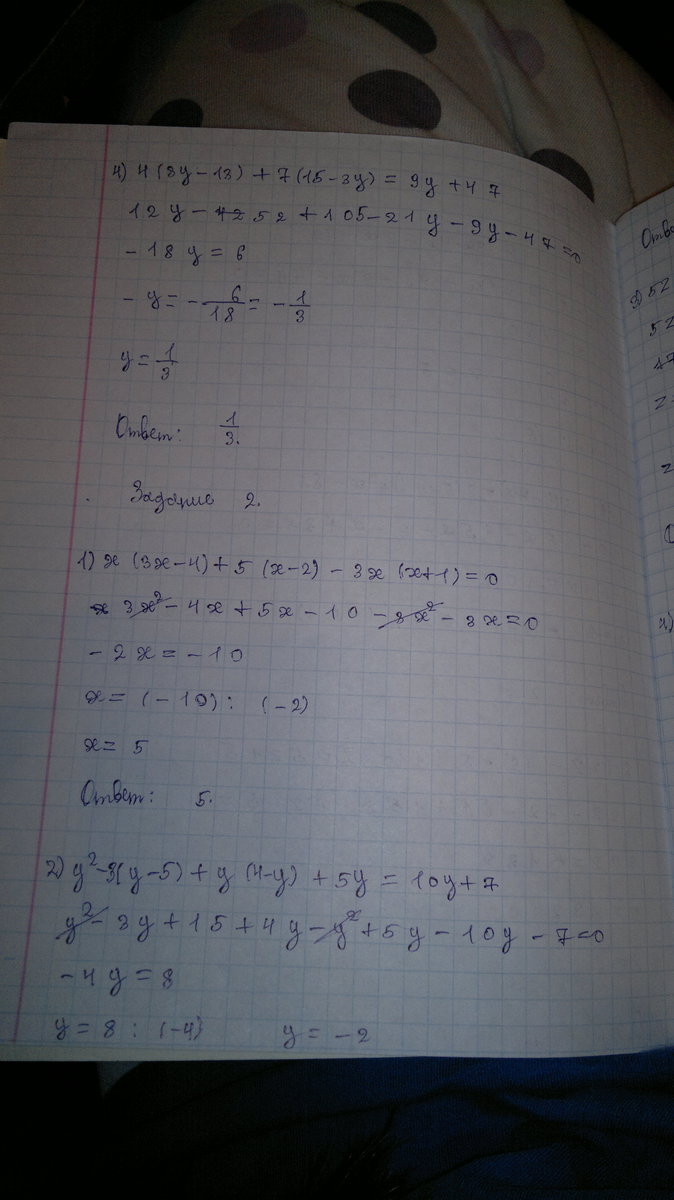 4) 4(3y-13)+7(15-3y)=9y+47
12y-42 52+105-21y-9y-47=0
-18y=6
-y=-6/18=-1/3
y=1/3
Ответ: 1/3.
Задание 2.
1) x(3x-4)+5(x-2)-3x(x+1)=0
x 3x²-4x+5x-10-3x²-3x=0
-2x=-10
x=(-10):(-2)
x=5
Ответ: 5.
2) y²-3(y-5)+y(4-y)+5y=10y+7
y²-3y+15+4y-y²+5y-10y-7=0
-4y=8
y=8:(-4) y=-2
3) 5z
5z
z